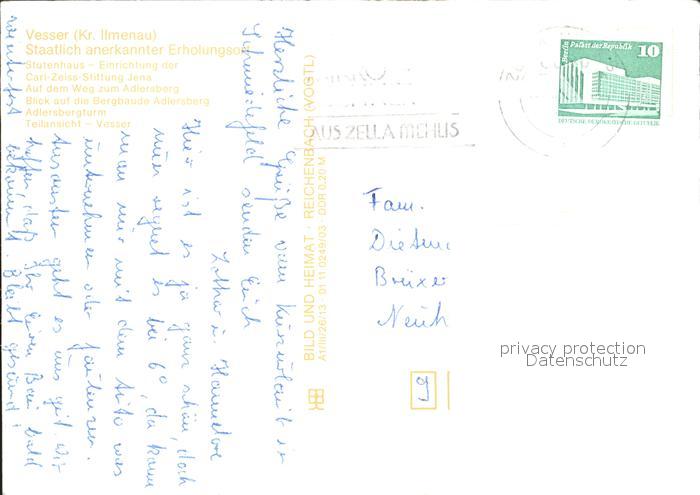 Vesser (Kr. Ilmenau)
Staatlich anerkannter Erholungsort
Stutenhaus – Einrichtung der
Carl-Zeiss-Stiftung Jena
Auf dem Weg zum Adlersberg
Blick auf die Bergbaude Adlersberg
Adlersbergturm
Teilansicht – Vesser
Herzliche Grüße vom Kurzurlaub in
Schmiedefeld senden Euch
Lothar u. Hannelore
Hier ist es ja ganz schön, doch
nun regnet es bei 6°, da kann
man nur mit dem Auto was
unternehmen oder faulenzen.
Ansonsten geht es uns gut. Wir
hoffen, daß Ihr Euren Bau bald
bekommt. Bleibt gesund!
BILD UND HEIMAT · REICHENBACH (VOGTL)
A1/III/26/13 01 11 0249/03 DDR 0,20 M
AUS ZELLA-MEHLIS
Berlin Palast der Republik
10
DEUTSCHE DEMOKRATISCHE REPUBLIK
Fam.
Neuh
privacy protection
Datenschutz